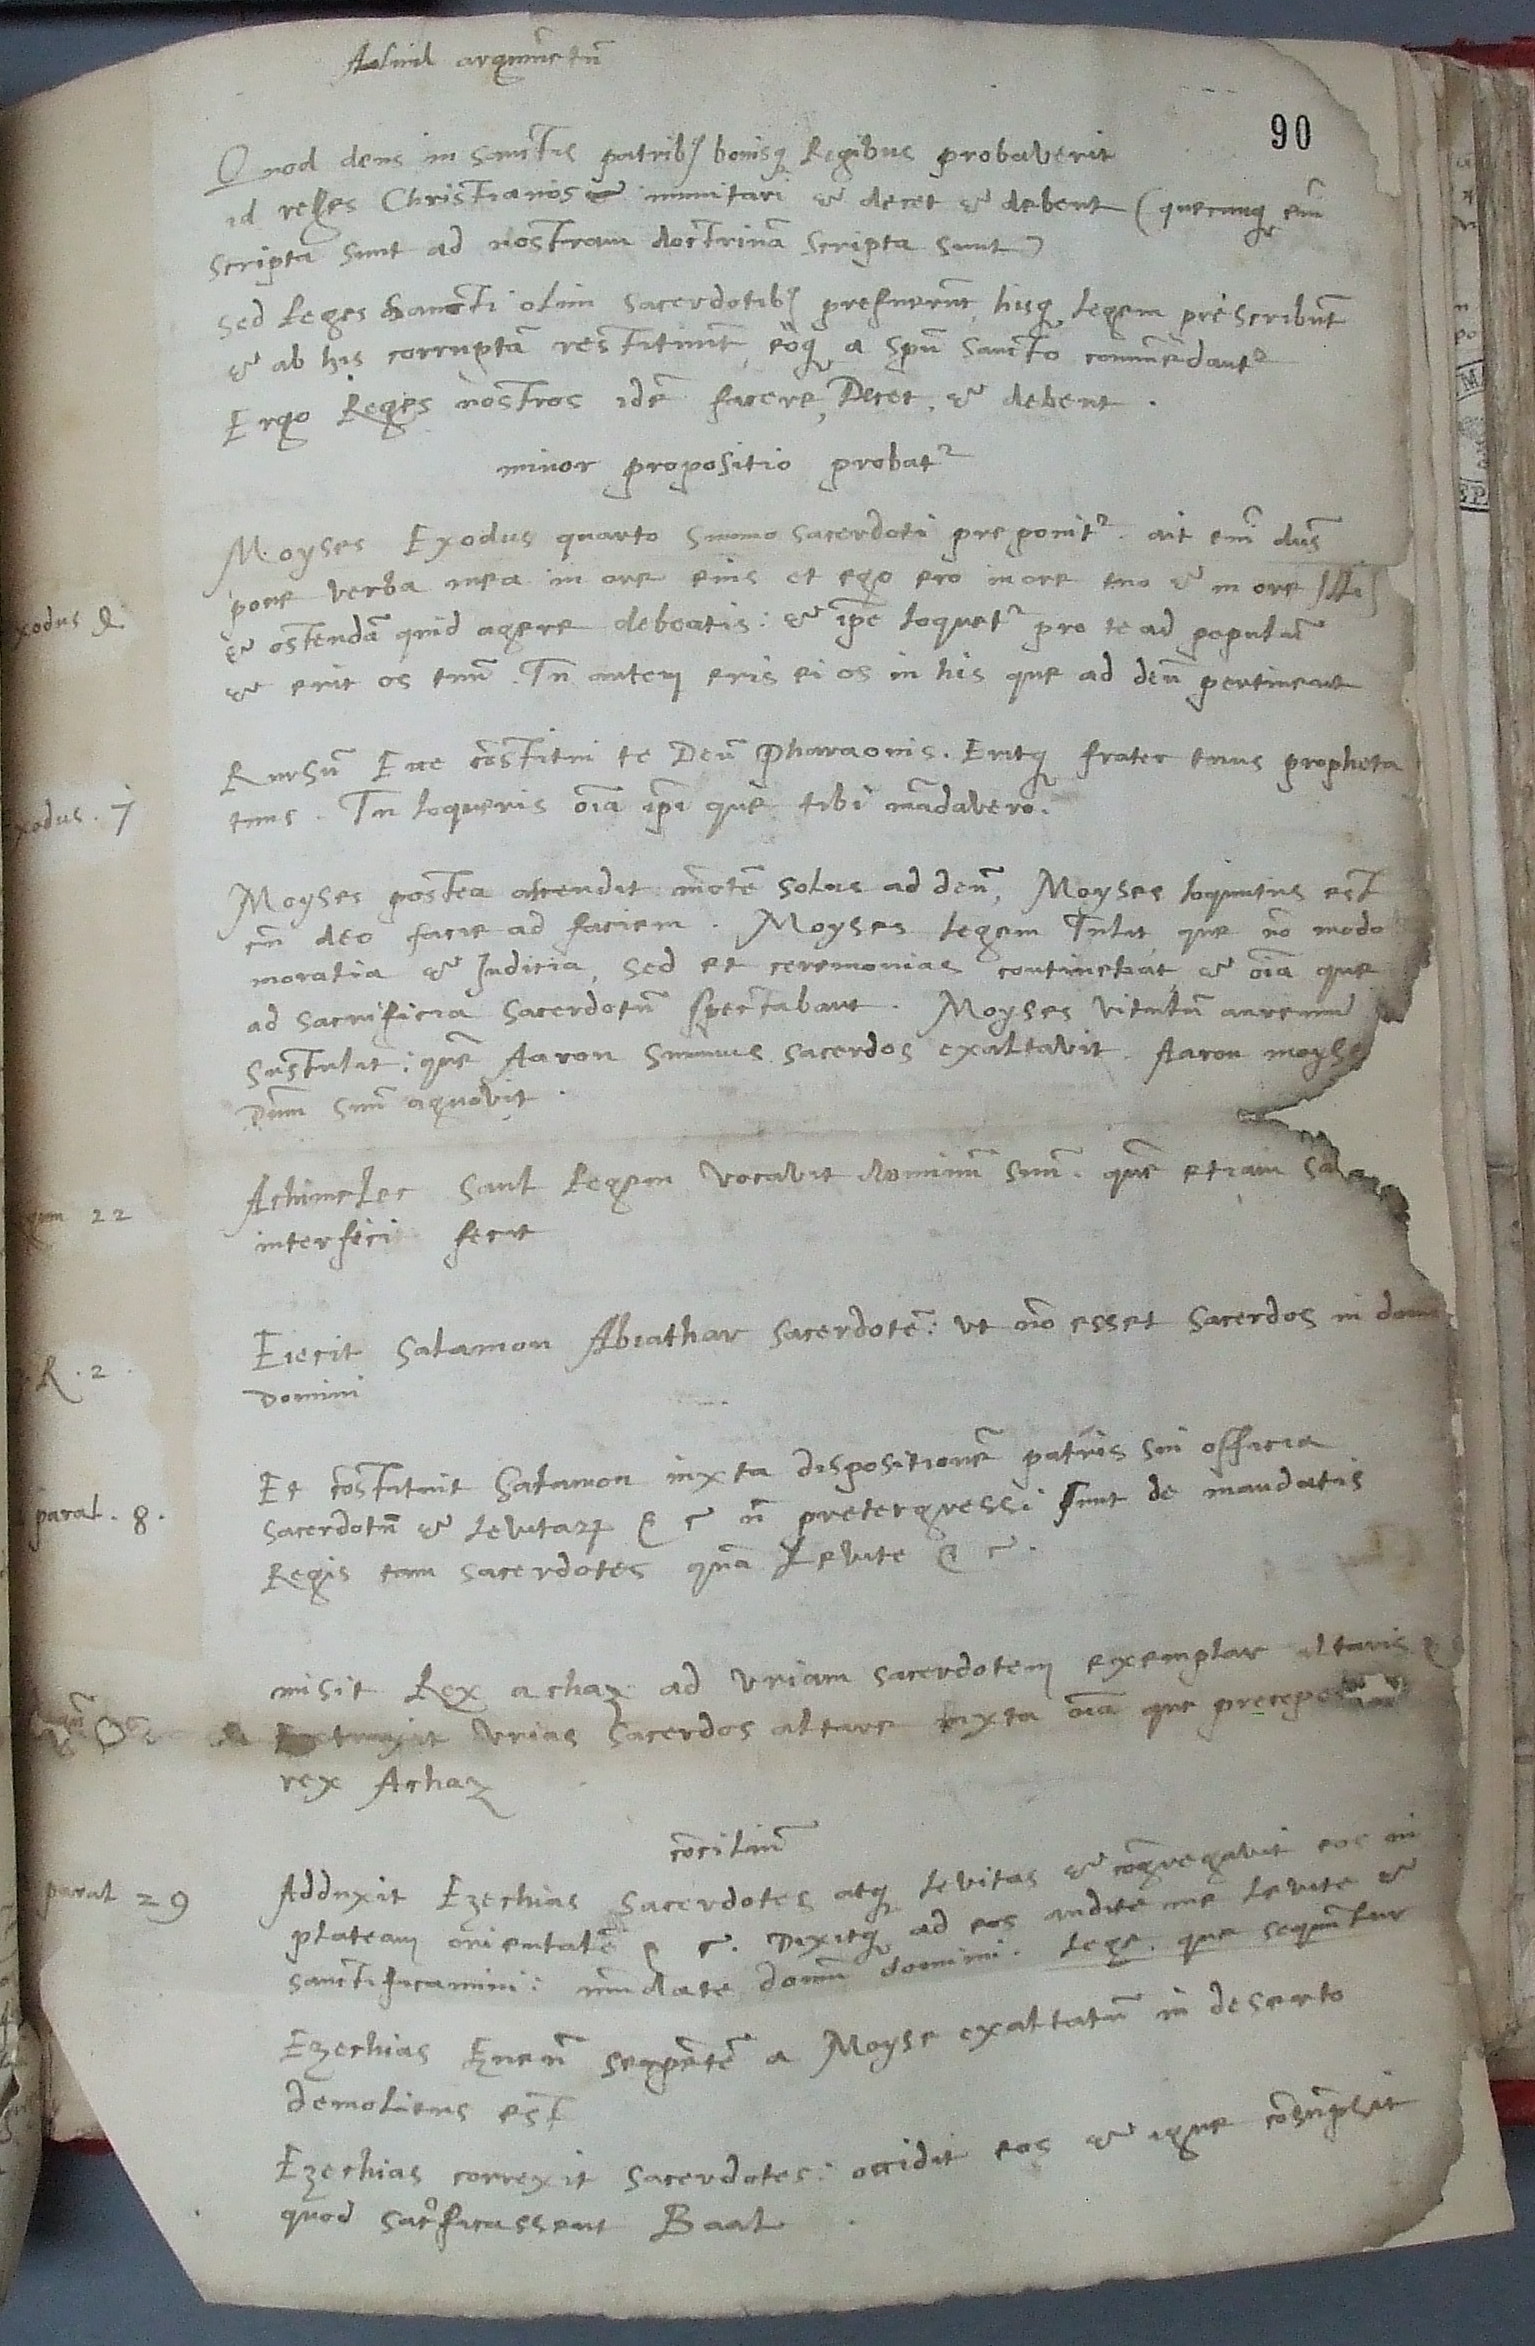 Aliud argumētū
90
Quod deus in sanctis patribꝫ bonisqꝫ Regibus probaverit
id reges Christianos immitari & decet & debent (quecunqꝫ em̄
scripta sunt ad nostram doctrinā scripta sunt)
sed Reges sancti olim sacerdotibꝫ prefuerūt, hisqꝫ legem prescribūt
& ab his corruptā restituūt, eoqꝫ a spū sancto commēdantʳ
Ergo Reges nostros idē facere, Decet, & debent.
minor propositio probatʳ
Moyses Exodus quarto Sūmo sacerdoti preponitʳ. ait em̄ dn̄s
pone verba mea in ore eius et ego ero in ore tuo & in ore illiꝰ
& ostendā quid agere debeatis: & ip̄e loquetʳ pro te ad populū
& erit os tuū. Tu autem eris ei os in his que ad deū pertinent
xodus 4.
Rursū Ecce cōstitui te Deū Pharaonis. Eritqꝫ frater tuus propheta
tuus. Tu loqueris oīa ip̄i que tibi mādavero.
xodus. 7
Moyses postea ascendit mōtē solus ad deū, Moyses loquutus est
cū deo facie ad faciem. Moyses legem Tulit que nō modo
moralia & Judicia, sed et ceremonias continebat, & oīa que
ad sacrificia sacerdotū spectabant. Moyses vitulū aureum
sustulit: quē Aaron sūmus sacerdos exaltavit. Aaron moyse
Dūm suū agnovit.
Achimelec Saul Regem vocavit dominū suū. quē etiam Sa
interfici fecit
gum 22
Eiecit Salamon Abiathar sacerdotē: ut nō esset sacerdos in domo
Domini
R. 2.
Et cōstituit Salamon iuxta dispositionē patris sui officia
sacerdotū & Levitaꝝ & c nō pretergressi sunt de mandatis
Regis tam sacerdotes quā Levite & c.
paral. 8.
misit Rex achaz ad Uriam sacerdotem exemplar altaris &
Extruxit Urias sacerdos altare iuxta oīa que preceperat
rex Achaz
cōciliū
Adduxit Ezechias sacerdotes atqꝫ Levitas & cōgregavit eos in
plateam orientalē & c. Dixitqꝫ ad eos audite me Levite &
sanctificamini: mūdate domū domini. Lege. que sequūtur
paral 29
Ezechias Eneū serpētē a Moyse exaltatū in deserto
demolitus est
Ezechias correxit sacerdotes: occidit eos & igne cōsumpsit
quod sacrificassent Baal.